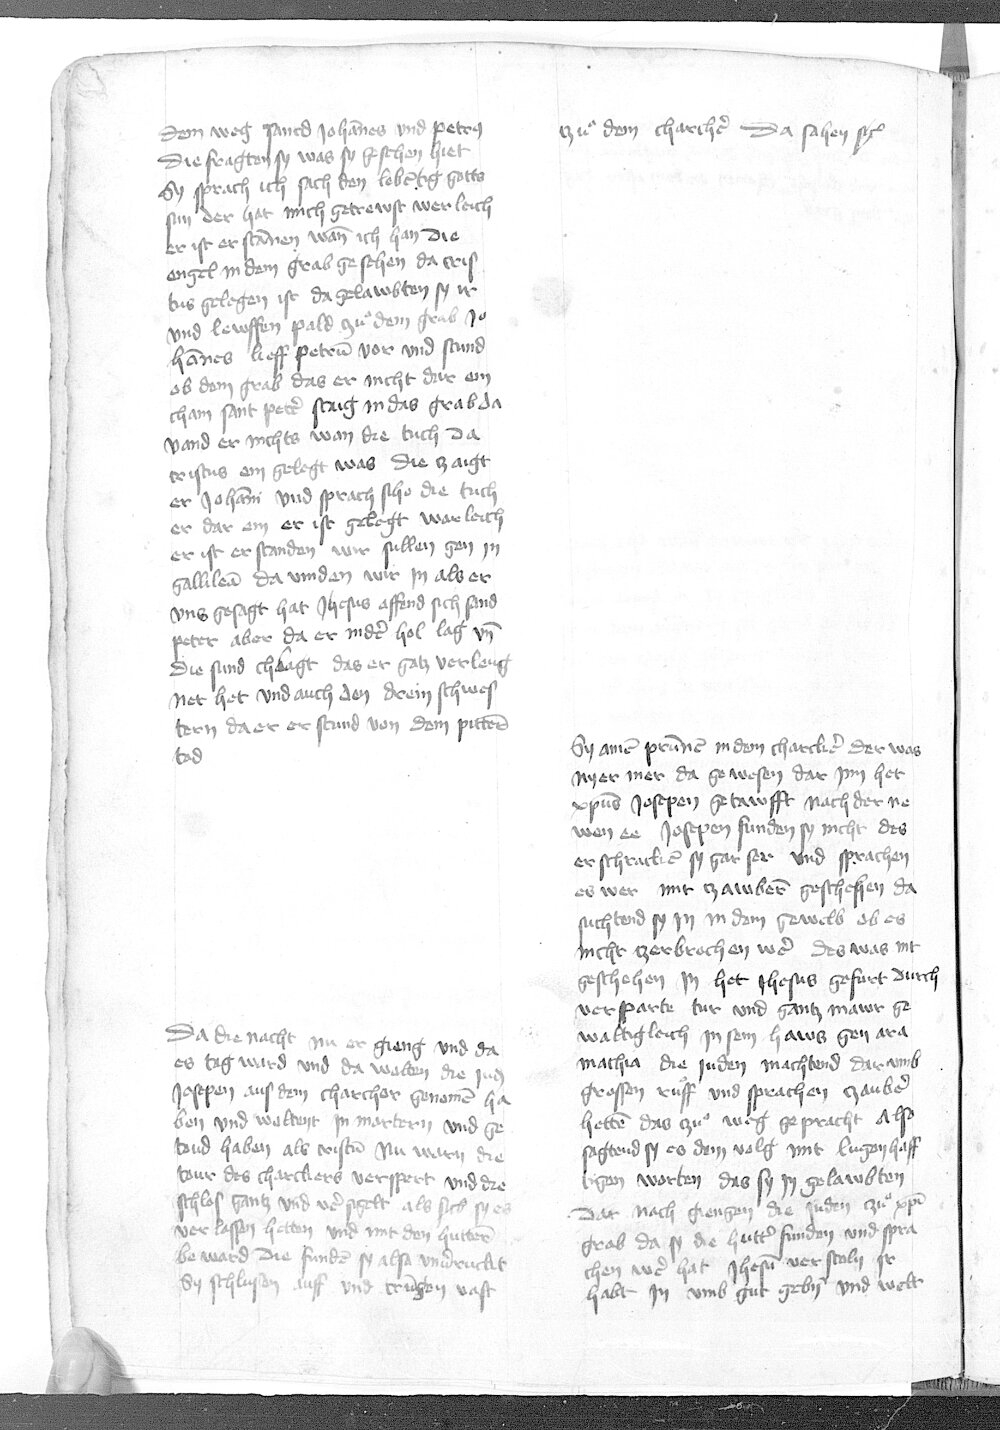 dem weg sancd Johānes vnd petrꝰ
die fragten sy was sy gesehen hiet
Sy sprach ich sach den lebētig gottes
sun der hat mich getrewst werleich
er ist erstānen wan̄ ich han die
engel in dem grab gesehen da cris
tus gelegen ist da gelawbten sy ir
vnd lewffen pald czuͦ dem grab Jo
hānes lieff petrū vor vnd stund
ob dem grab das er nicht dar ein
cham sant peter̄ staig in das grab da
vand er nichts wan die tuch da
cristus ein gelegt was die czaigt
er Johāni vnd sprach siho die tuch
er dar ein er ist gelegt warleich
er ist erstanden wir sullen gen in
gallileā da vinden wir in als er
vns gesagt hat Jhesus offend sich sand
peter aber da er inder̄ hol lag vn̄
die sund chlagt das er gatz verleug
net het vnd auch den drein schwes
tern da er erstund von dem pittern̄
tod
Da die nacht nu ergieng vnd da
es tag ward vnd da wolten die Judn̄
Josepen aus dem charcher genomē ha
ben vnd woltent in martern vnd ge
toud haben als cristū Nu warn die
tour des charckers verspert vnd die
schlos gantz vnd ver̄sigelt als sich sy es
verlassen hetten vnd mit den hutter̄n
beward Die fundē sy alsa vnuer̄ruckt
Sy schlussen auff vnd trūgen vast
czuͦ dem charcher̄ Da sahen sy
Sy ainē prūnē in dem charcker̄ der was
nyer mer da gewesen dar Inn het
xpūs Josepen getawfft nach der ne
wen ee Josepen funden sy nicht des
erschrackē sy gar ser vnd sprachen
es wer mit czawber̄ geschehen da
suchtend sy in in dem gewelb ob es
nicht czerbrochen wer̄ des was nit
geschehen In het Jhesus gefurt durch
versparte tur vnd gantz mawr ge
waltigleich in sein haws gen ara
mathia die Juden machtend darumb
grossen ruͦff vnd sprachen czauber̄
hettē das czuͦ weg gepracht Also
sagtend sy es dem volg mit lugenhaff
tigen worten das sy in gelawbten
Dar nach giengen die Juden czuͦ xp̄i
grab da sy die hutter̄ funden vnd spra
chen wer̄ hat Jhesū verstoln ir
habt in vmb gut gebn̄ vnd welt